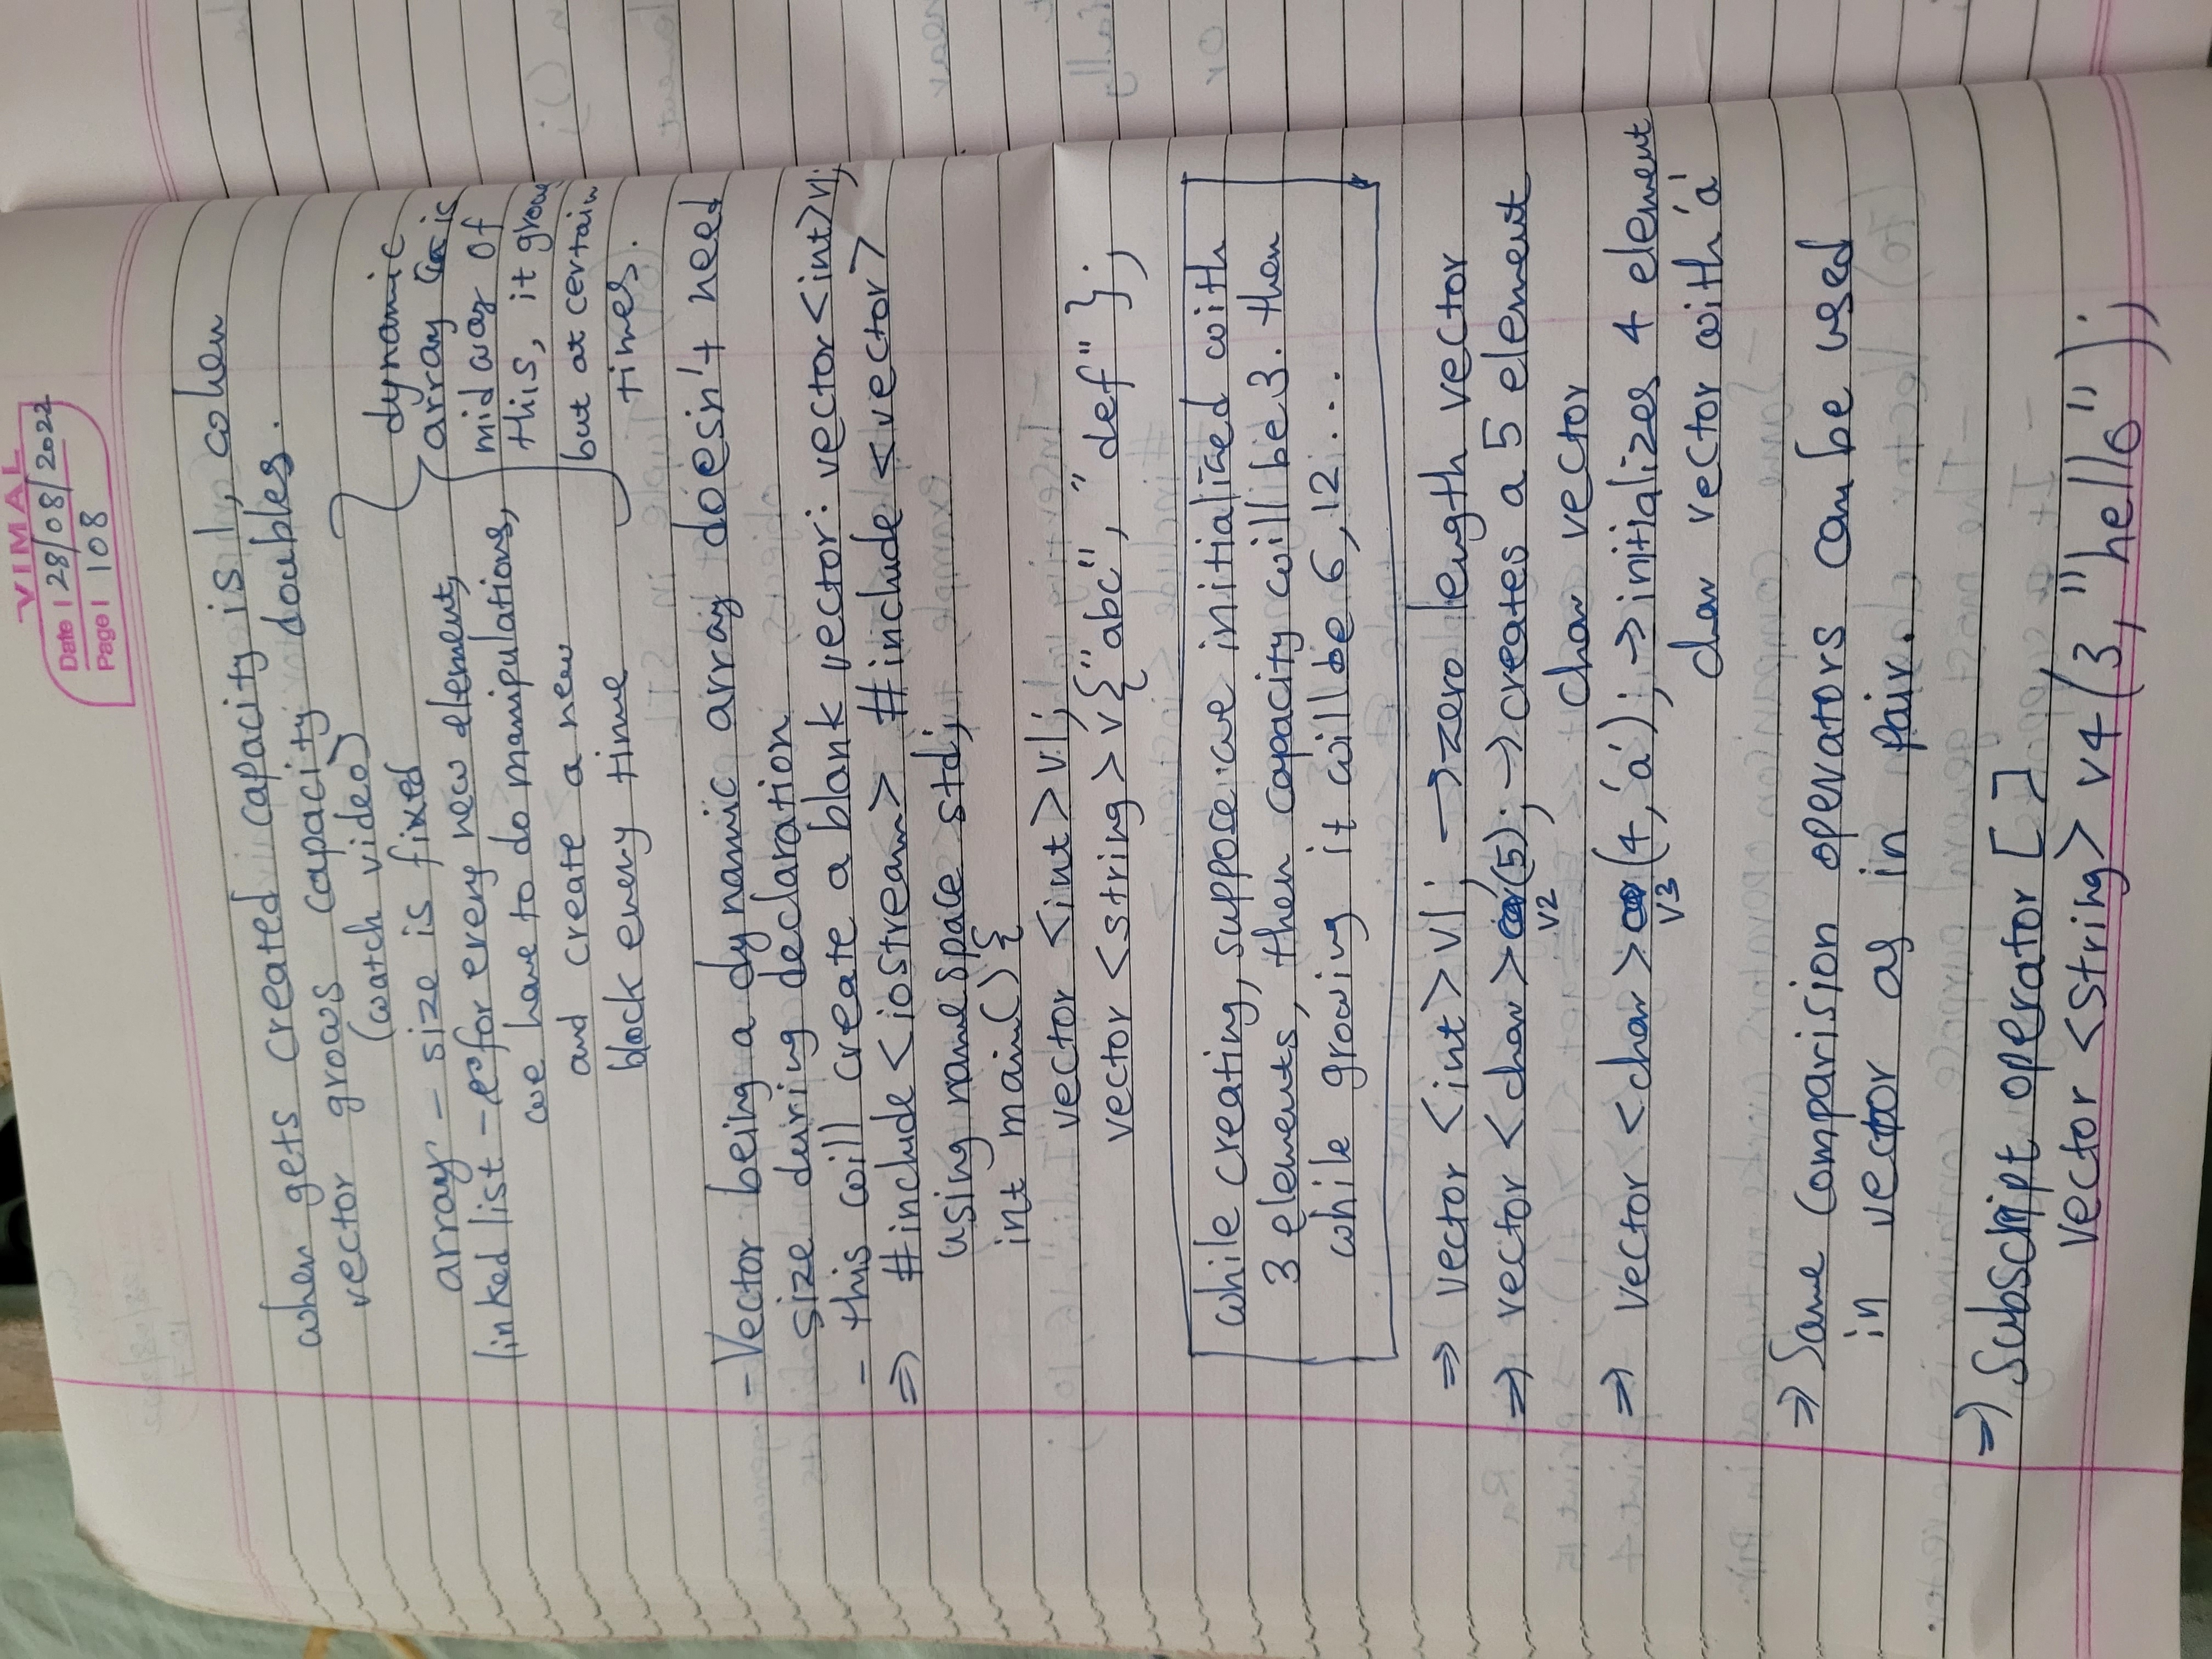 VIMAL
Date | 28/08/2022
Page | 108
when gets created capacity is 1, when
vector grows capacity doubles.
(watch video)
array - size is fixed
linked list - for every new element,
we have to do manipulations,
and create a new
block every time
dynamic
array is
midway of
this, it grows
but at certain
times.
- Vector being a dynamic array doesn't need
size during declaration
- this will create a blank vector: vector <int> v1;
⇒ #include <iostream> #include <vector>
using namespace std;
int main() {
vector <int> v1;
vector <string> v{"abc", "def"};
while creating, suppose we initialized with
3 elements, then capacity will be 3. then
while growing it will be 6, 12 ...
⇒ vector <int> v1; → zero length vector
⇒ vector <char> v2(5); → creates a 5 element
char vector
⇒ vector <char> v3(4, 'a'); → initializes 4 element
char vector with 'a'
⇒ Same comparision operators can be used
in vector as in pair.
⇒ Subscript operator []
vector <string> v4(3, "hello");